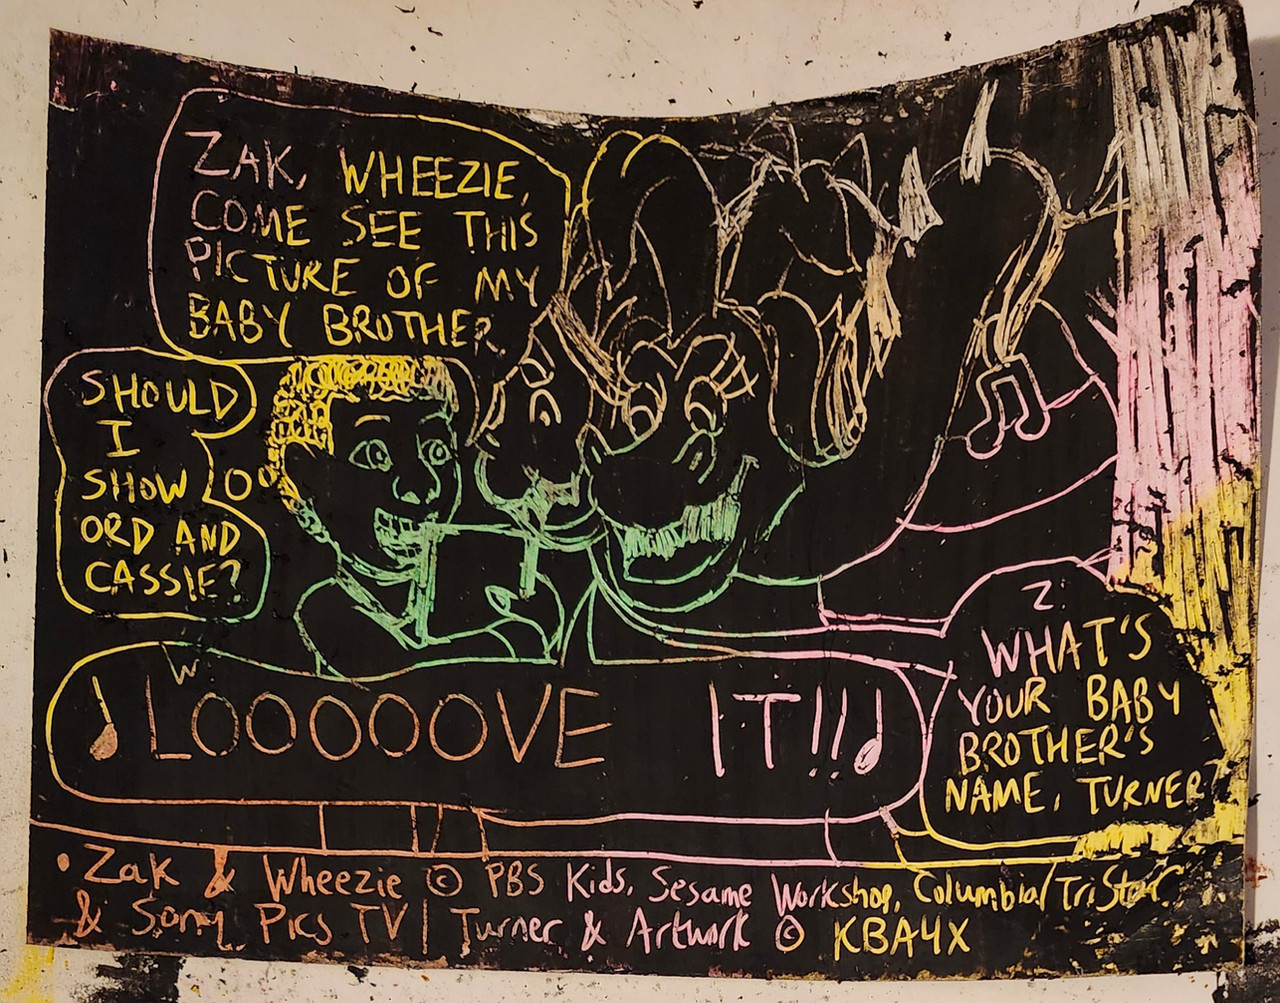 ZAK, WHEEZIE,
COME SEE THIS
PICTURE OF MY
BABY BROTHER.
SHOULD
I
SHOW
ORD AND
CASSIE?
W
LOOOOOVE IT!!
Z.
WHAT'S
YOUR BABY
BROTHER'S
NAME, TURNER?
• Zak & Wheezie © PBS Kids, Sesame Workshop, Columbia/TriStar
& Sony Pics TV | Turner & Artwork © KBA4X